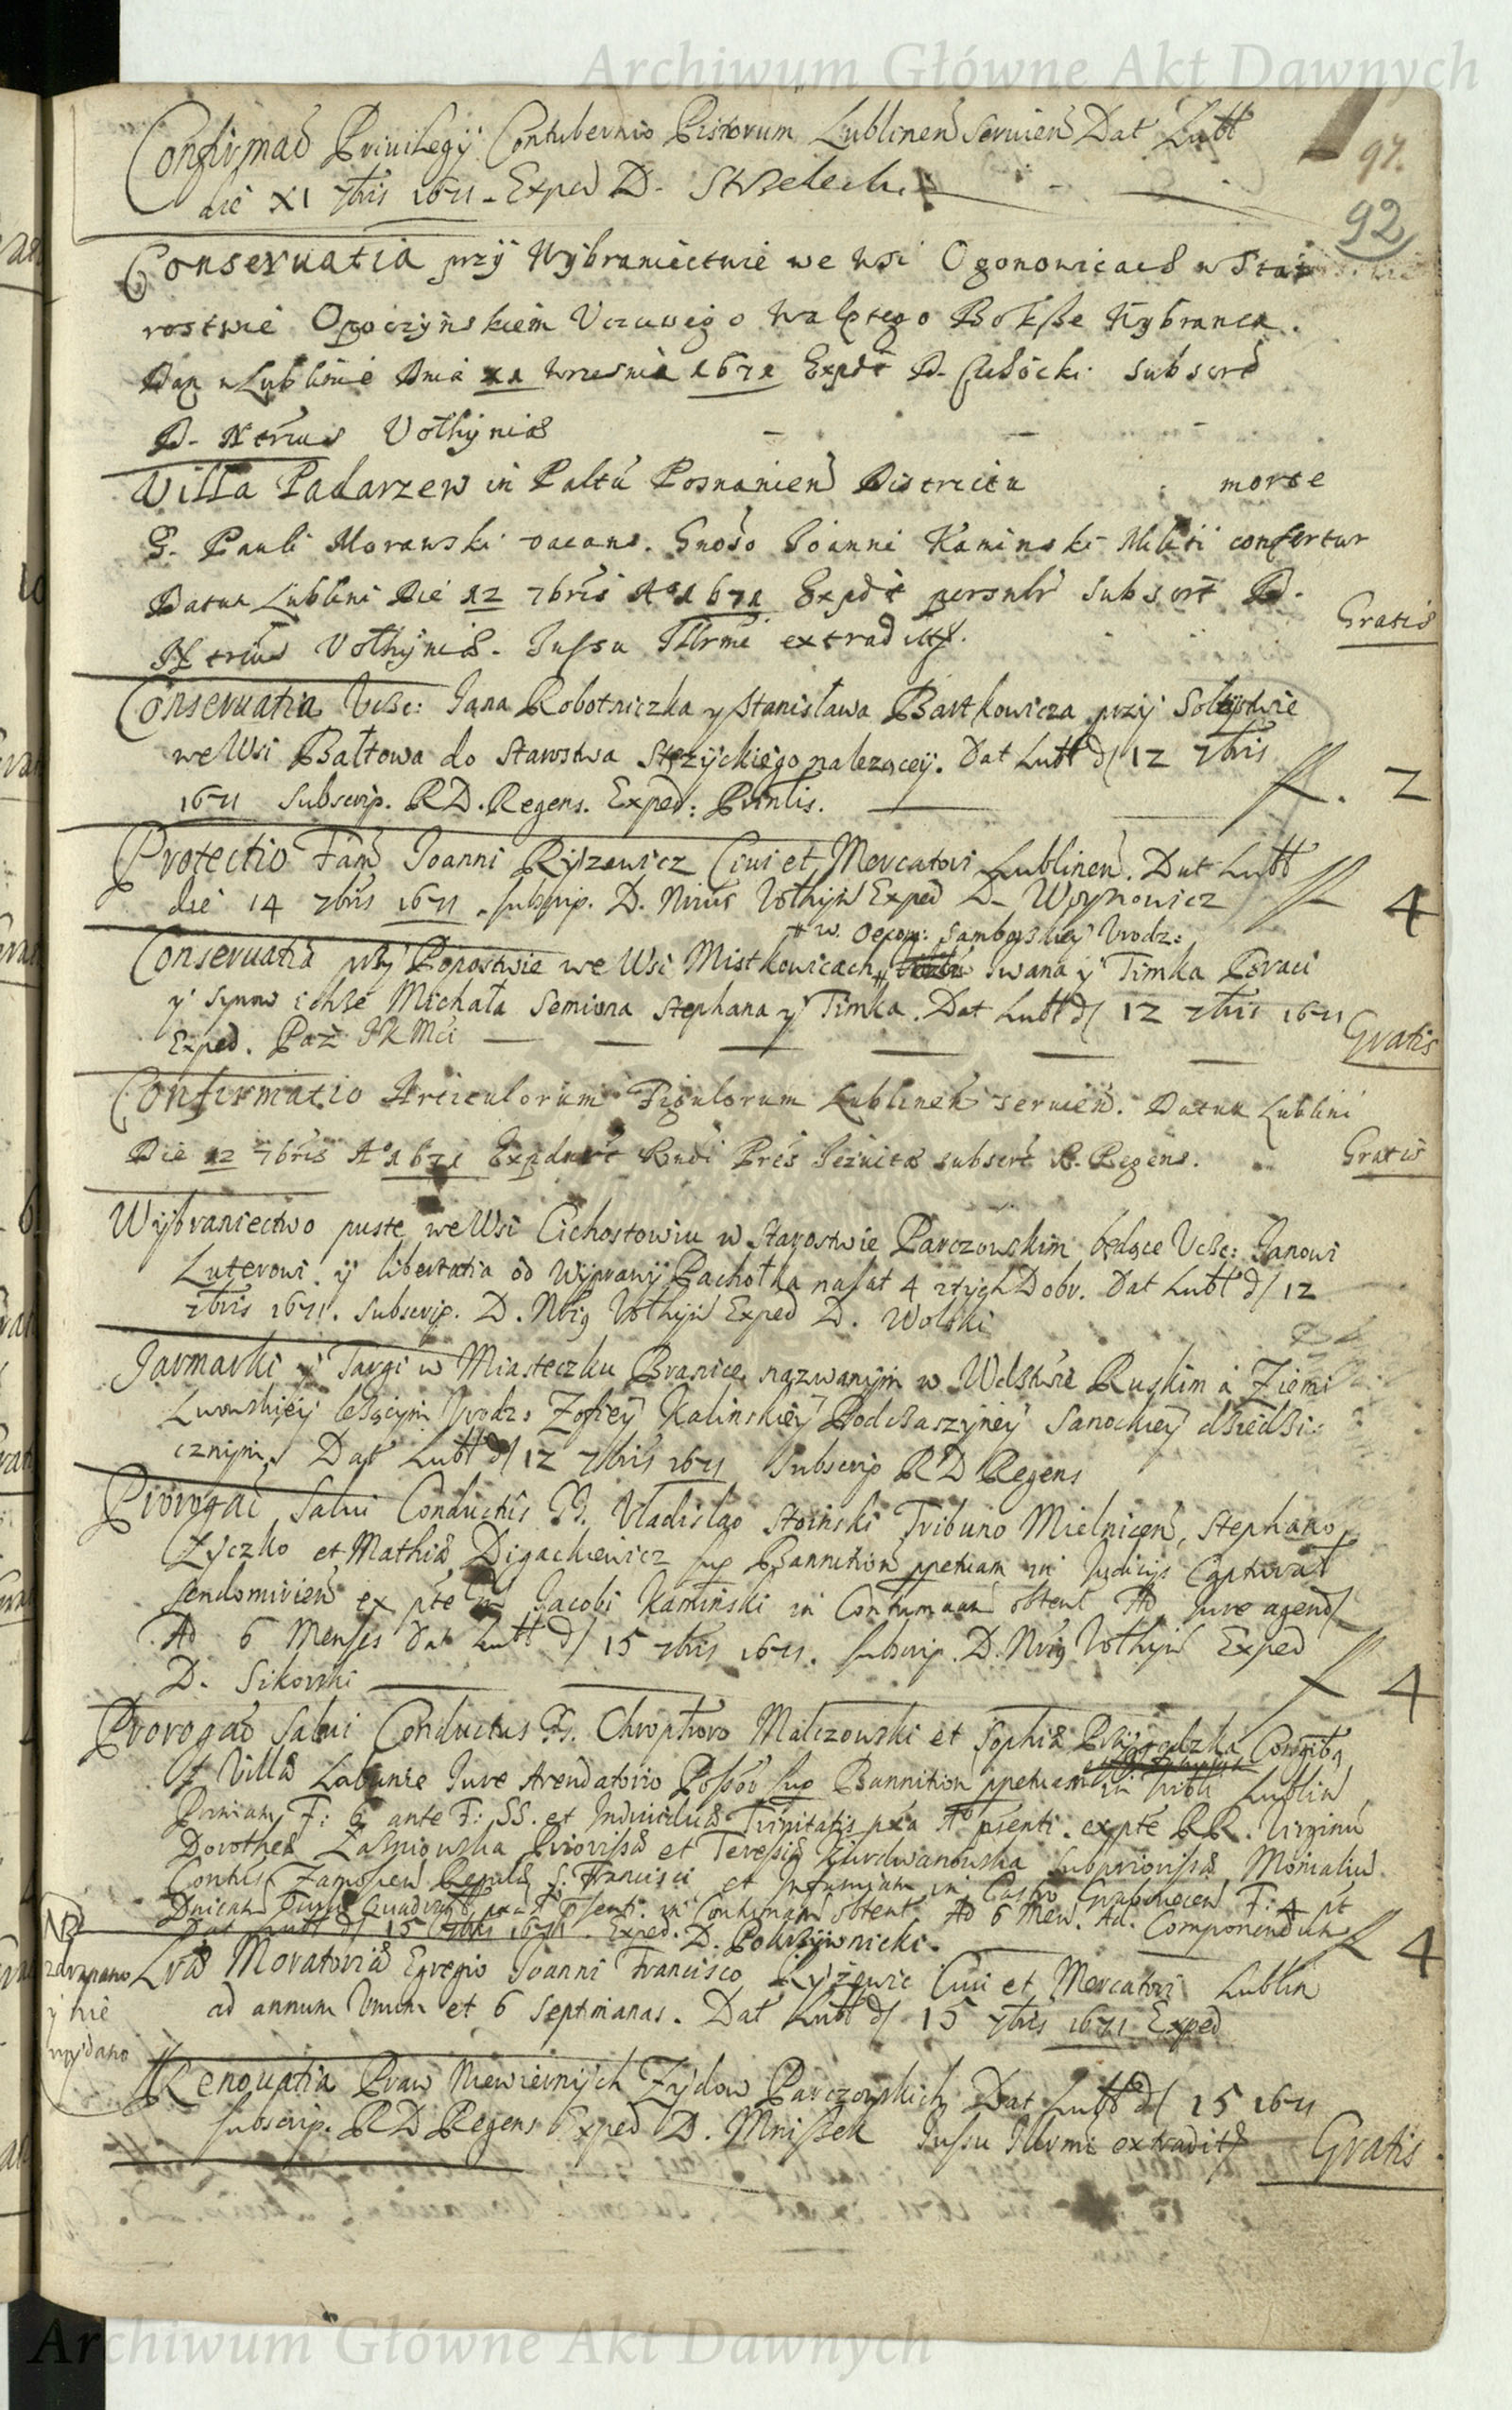 Archiwum Główne Akt Dawnych
97.
92
Confirmaõ Privilegÿ Contubernio Pistorum Lublineñ servieñ Dat Lubł
die XI 7bris 1671 - Exped D. Strzelecki
Conservatia przÿ Wÿbraniectwie we wsi Ogonowicach w Sta
rostwie Opoczÿnskiem Uczciwego Walętego Wÿbranca.
Dan w Lublinie Dnia 11 Wrzesnia 1671 Expdt D. subscrt
D. Ntrius Volhÿniæ
Villa Padarzew in Paltu Posnanień Districtu morte
G. Pauli Morawski vacans. Gnoso Joanni Kaminski Militi confertur
Datum Lublini Die 12 7bris Aº 1671 Expdt personlr subscrt D.
Ntrius Volhÿniæ. Jussu Illrmi extradit.
Gratis
Conservatia Ucze: Jana Robotniczka y Stanisława Bartkowicza przÿ Sołtÿstwie
we Wsi Bałtowa do Starostwa Stęzÿckiego nalezącey. Dat Lubł d 12 7bris
1671 Subscrip. RD. Regens. Exped: Pnntis.
fl. 2
Protectio Fam Joanni Rÿzewicz Civi et Mercatori Lublineñ. Dat Lubł
die 14 7bris 1671. subscrip. D. Nrius Volhÿñ Exped D. Woynowicz
fl 4
# w. Oecon: Samborskieÿ Urodz:
Conservatia przÿ Popostwie we Wsi Mistkowicach # Iwana ÿ Timka Braci
ÿ synow ichże Michała Semiona Stephana ÿ Timka. Dat Lubł d 12 7bris 1671
Exped. Paź JKMci
Gratis
Confirmatio Articulorum Figulorum Lublineñ servieñ. Datum Lublini
Die 12 7bris Aº 1671 Expdnt Rndi Pres Jezuitæ subscrt R. Regens.
Gratis
Wÿbraniectwo puste we Wsi Cichostowiu w Starostwie Parczowskim będące Ucze: Janowi
Luterowi ÿ libertatia od Wÿprawÿ Pachołka na lat 4 z tÿch Dobr. Dat Lubł d 12
7bris 1671. Subscrip. D. Nrig Volhÿñ Exped D. Wolski
Jarmarki ÿ Targi w Miasteczku Branice nazwanÿm w Wdztwie Ruskim a Ziemi
Lwowskieÿ leżącÿm Urodz: Zofieÿ Kalinskieÿ Podczaszÿneÿ Sanockieÿ dziedzi:
cznÿm. Dat Lubł d 12 7bris 1671 Subscrip RD Regens
Prorogaõ Salvi Conductus G. Vladislao Stoinski Tribuno Mielniceñ, Stephano
Zyczko et Mathiæ Digackiewicz sup Bannition ppetuam in Judicijs Capturał
Sendomirieñ ex pte G Jacobi Kaminski in Contumaam obtent Ad Jure agend
Ad 6 Menses Dat Lubł d 15 7bris 1671. subscrip. D. Nrig Volhÿñ Exped
D. Sikorski
fl 4
Prorogaõ Salvi Conductus G. Chrophoro Malczowski et Sophiæ Conyugibg
Villæ Labunie Jure Arendatorio Possor sup Bannition ppetuam in Trbli Lublin
F: 6 ante F: SS. et Individuæ Trinitatis pxa Aº psenti. ex pte RR. Virginu
Dorotheæ Priorissæ et Teresiæ Subpriorissæ Monialiu
Contus Zamosceñ Regulæ S. Francisci et Infamiam in Castro Graboviceñ F: 4 pt
Dnicam in Contumaam obtent. Ad 6 Men. Ad. Componendum
Dat Lubł d 15 7bris 1671. Exped. D. Pokrzÿwnicki.
fl 4
NB
zdrapano
ÿ nie
wydano
Lræ Moratoriæ Egregio Joanni Francisco Rÿżewic Civi et Mercatori Lublin
ad annum Unum et 6 Septimanas. Dat Lubł d 15 7bris 1671 Exped
Renovatia Praw Niewiernÿch Zÿdow Parczowskich Dat Lubł d 15 1671
subscrip. RD Regens Exped D. Mniszek Jussu Illrmi extradit
Gratis
Archiwum Główne Akt Dawnych